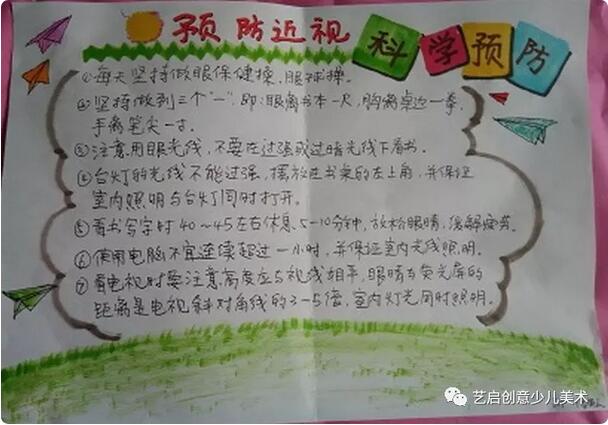 预防近视
科学预防
①每天坚持做眼保健操,眼球操。
②坚持做到三个"一",即:眼离书本一尺,胸离桌边一拳,
手离笔尖一寸。
③注意用眼光线,不要在过强或过暗光线下看书。
④台灯的光线不能过强,摆放在书桌的左上角,并保证
室内照明与台灯同时打开。
⑤看书写字时40~45左右休息5-10分钟,放松眼睛,缓解疲劳。
⑥使用电脑不宜连续超过一小时,并保证室内光线照明。
⑦看电视时要注意高度应与视线相平,眼睛与荧光屏的
距离是电视斜对角线的3-5倍,室内灯光同时照明。
艺启创意少儿美术